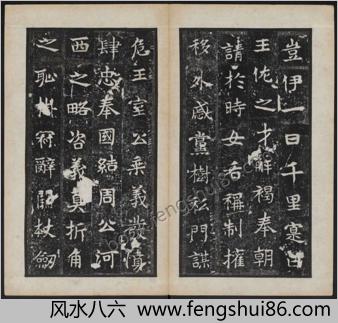 豈伊一日千里稟
王佐之才解褐奉朝
請於時女后稱制權
移外戚黨樹私門謀
危王室公秉義發憤
肆忠奉國結周公河
西之略咨義真折角
之恥州府辭杖劒
fengshui86.com
风水八六 www.fengshui86.com